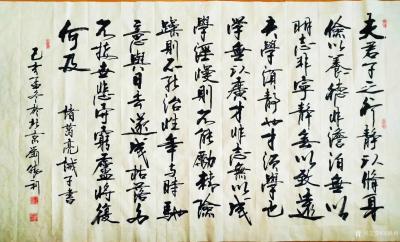 夫君子之行静以脩身
儉以養德非澹泊無以
明志非寧静無以致遠
夫學須静也才須學也
學無以廣才非志無以成
學淫慢則不能勵精險
躁則不能治性年与時馳
意與日去遂成枯落多
不接世悲守窮廬將復
何及 諸葛亮誡子書
己亥孟冬於北京劉銀利